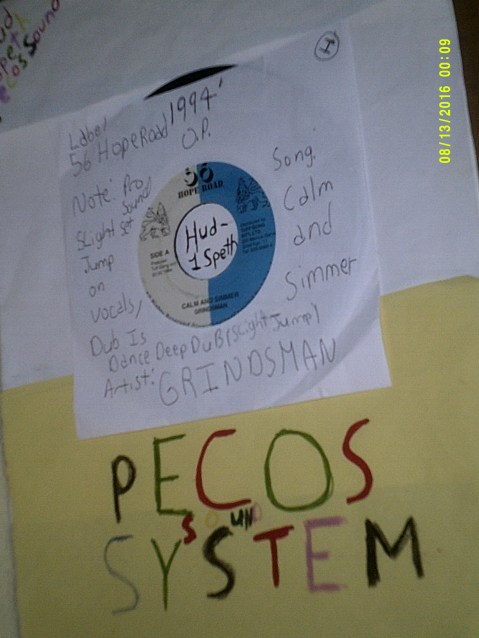 ud
peth
ecos Sound
08/13/2016 00:09
1
Label
56 Hope Road 1994'
O.P.
Note: Pro
Sound
Slight Set
Jump
on
Vocals/
Dub Is
Dance Deep Dub (Slight Jump)
Artist: GRINDSMAN
Song:
Calm
and
Simmer
56
HOPE ROAD
Hud-
1 Speth
SIDE A
CALM AND SIMMER
GRINDSMAN
PECOS
SOUND
SYSTEM